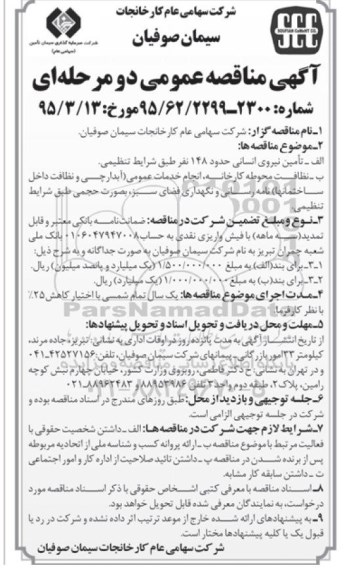 شرکت سهامی عام کارخانجات
سیمان صوفیان
آگهی مناقصه عمومی دو مرحله‌ای
شماره: ۲۳۰۰-۹۵/۶۲/۲۲۹۹ مورخ: ۹۵/۳/۱۳
۱-نام مناقصه گزار: شرکت سهامی عام کارخانجات سیمان صوفیان.
۲-موضوع مناقصه ها:
الف-تأمین نیروی انسانی حدود ۱۴۸ نفر طبق شرایط تنظیمی.
ب-نظافت محوطه کارخانه، انجام خدمات عمومی(آبدارچی و نظافت داخل
ساختمانها) نامه رسانی و نگهداری فضای سبز، بصورت حجمی طبق شرایط
تنظیمی.
۳-نوع و مبلغ تضمین شرکت در مناقصه: ضمانت‌نامه بانکی معتبر و قابل
تمدید(سه ماهه) یا فیش واریزی نقدی به حساب ۰۱۰۶۰۴۷۹۴۷۰۰۸ بانک ملی
شعبه چمران تبریز به نام شرکت سیمان صوفیان به صورت جداگانه و به شرح ذیل:
۳-۱-برای بند(الف) به مبلغ ۱/۵۰۰/۰۰۰/۰۰۰ (یک میلیارد و پانصد میلیون) ریال.
۳-۲-برای بند(ب) به مبلغ ۱/۰۰۰/۰۰۰/۰۰۰ (یک میلیارد) ریال.
۴-مدت اجرای موضوع مناقصه ها: یک سال تمام شمسی با اختیار کاهش ۲۵٪
با نظر کارفرما.
۵-مهلت و محل دریافت و تحویل اسناد و تحویل پیشنهادها:
از تاریخ انتشار آگهی به مدت پانزده روز در اوقات اداری به نشانی: تبریز، جاده مرند،
کیلومتر ۳۳ امور بازرگانی، پیمانهای شرکت سیمان صوفیان، تلفن: ۴۲۵۲۷۱۵۶-۰۴۱
و در تهران به نشانی: خ دکتر فاطمی، روبروی وزارت کشور، خیابان چهارم، نبش کوچه
رامین، پلاک ۲، طبقه دوم واحد ۳ تلفن: ۸۸۹۵۳۹۸۶ و ۸۸۹۶۲۴۸۳-۰۲۱
۶-جلسه توجیهی و بازدید از محل: طبق روزهای مندرج در اسناد مناقصه بوده و
شرکت در جلسه توجیهی الزامی است.
۷-شرایط لازم جهت شرکت در مناقصه ها: الف-داشتن شخصیت حقوقی با
فعالیت مرتبط با موضوع مناقصه ب-ارائه پروانه کسب و شناسه ملی از اتحادیه مربوطه
پس از برنده شدن در مناقصه پ-داشتن تائید صلاحیت از اداره کار و امور اجتماعی
ت-داشتن سابقه کار مشابه.
۸-اسناد مناقصه با معرفی کتبی اشخاص حقوقی با ذکر اسناد مناقصه مورد
درخواست، به نمایندگان معرفی شده قابل تحویل خواهد بود.
۹-به پیشنهادهای ارائه شده خارج از موعد ترتیب اثر داده نشده و شرکت در رد یا
قبول یک یا کلیه پیشنهادها مختار است.
شرکت سهامی عام کارخانجات سیمان صوفیان